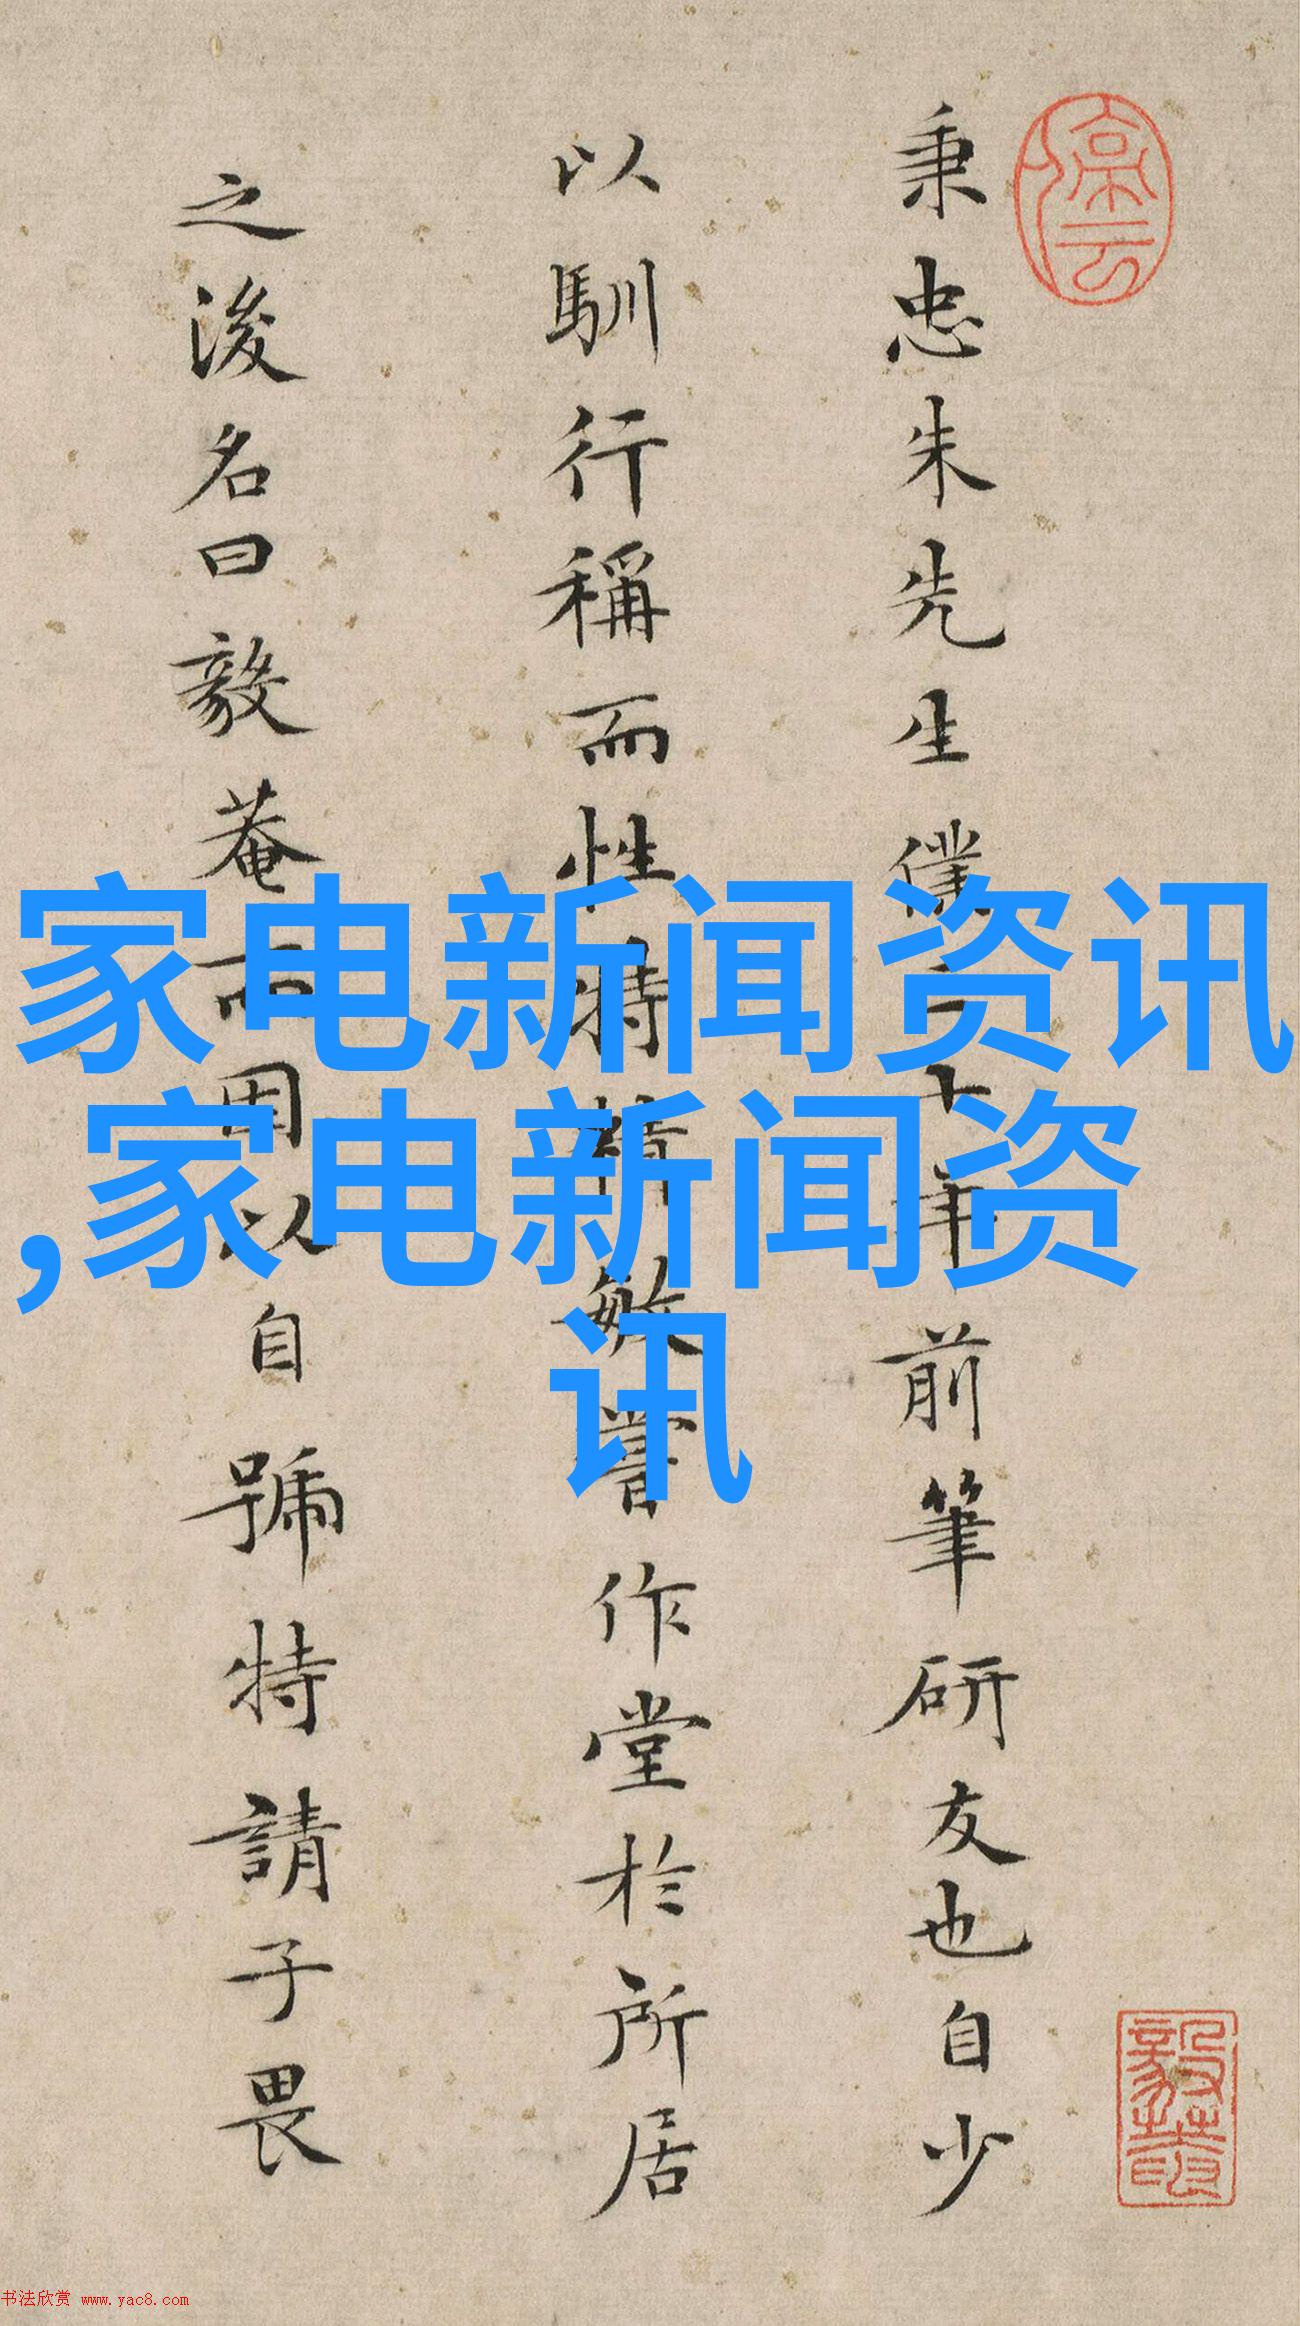 秉忠朱先生僕十年前筆研友也自少
以馴行稱而性特精敏嘗作堂於所居
之後名曰毅菴而因以自號特請子畏
家电新闻资讯
,家电新闻资
讯
书法欣赏 www.yac8.com